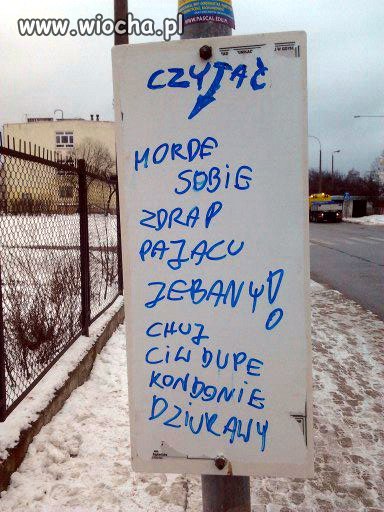 www.wiocha.pl
www.PASCAL.EDU.PL
CZYTAĆ
MORDE
SOBIE
ZDRAP
PAJACU
JEBANY!
CHUJ
CI W DUPE
KONDONIE
DZIURAWY